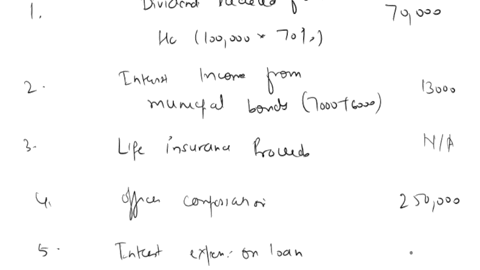 1. Dividend received f 70,000
Hc (100,000 * 70%)
2. Interest Income from
municipal bonds (7000+6000) 13000
3. Life insurance Proceeds N/A
4. Officer compensation 250,000
5. Interest expen. on loan